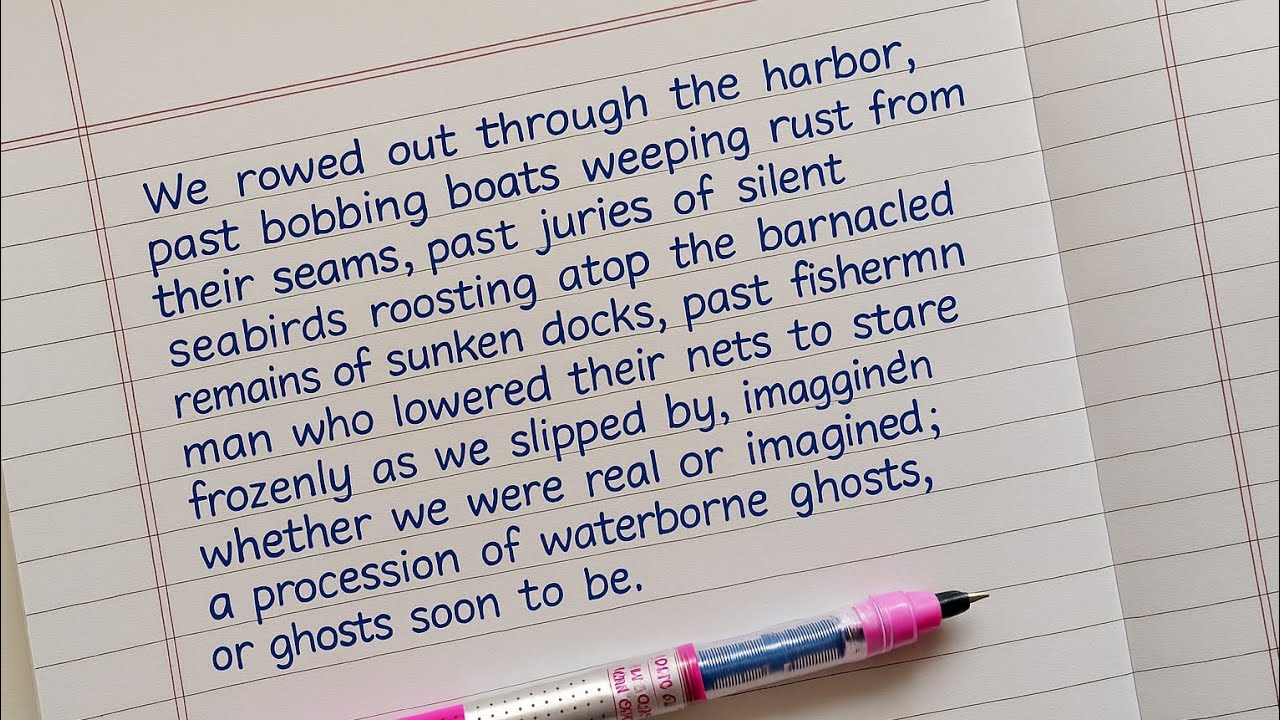 We rowed out through the harbor,
past bobbing boats weeping rust from
their seams, past juries of silent
seabirds roosting atop the barnacled
remains of sunken docks, past fishermn
man who lowered their nets to stare
frozenly as we slipped by, imagginén
whether we were real or imagined;
a procession of waterborne ghosts,
or ghosts soon to be.